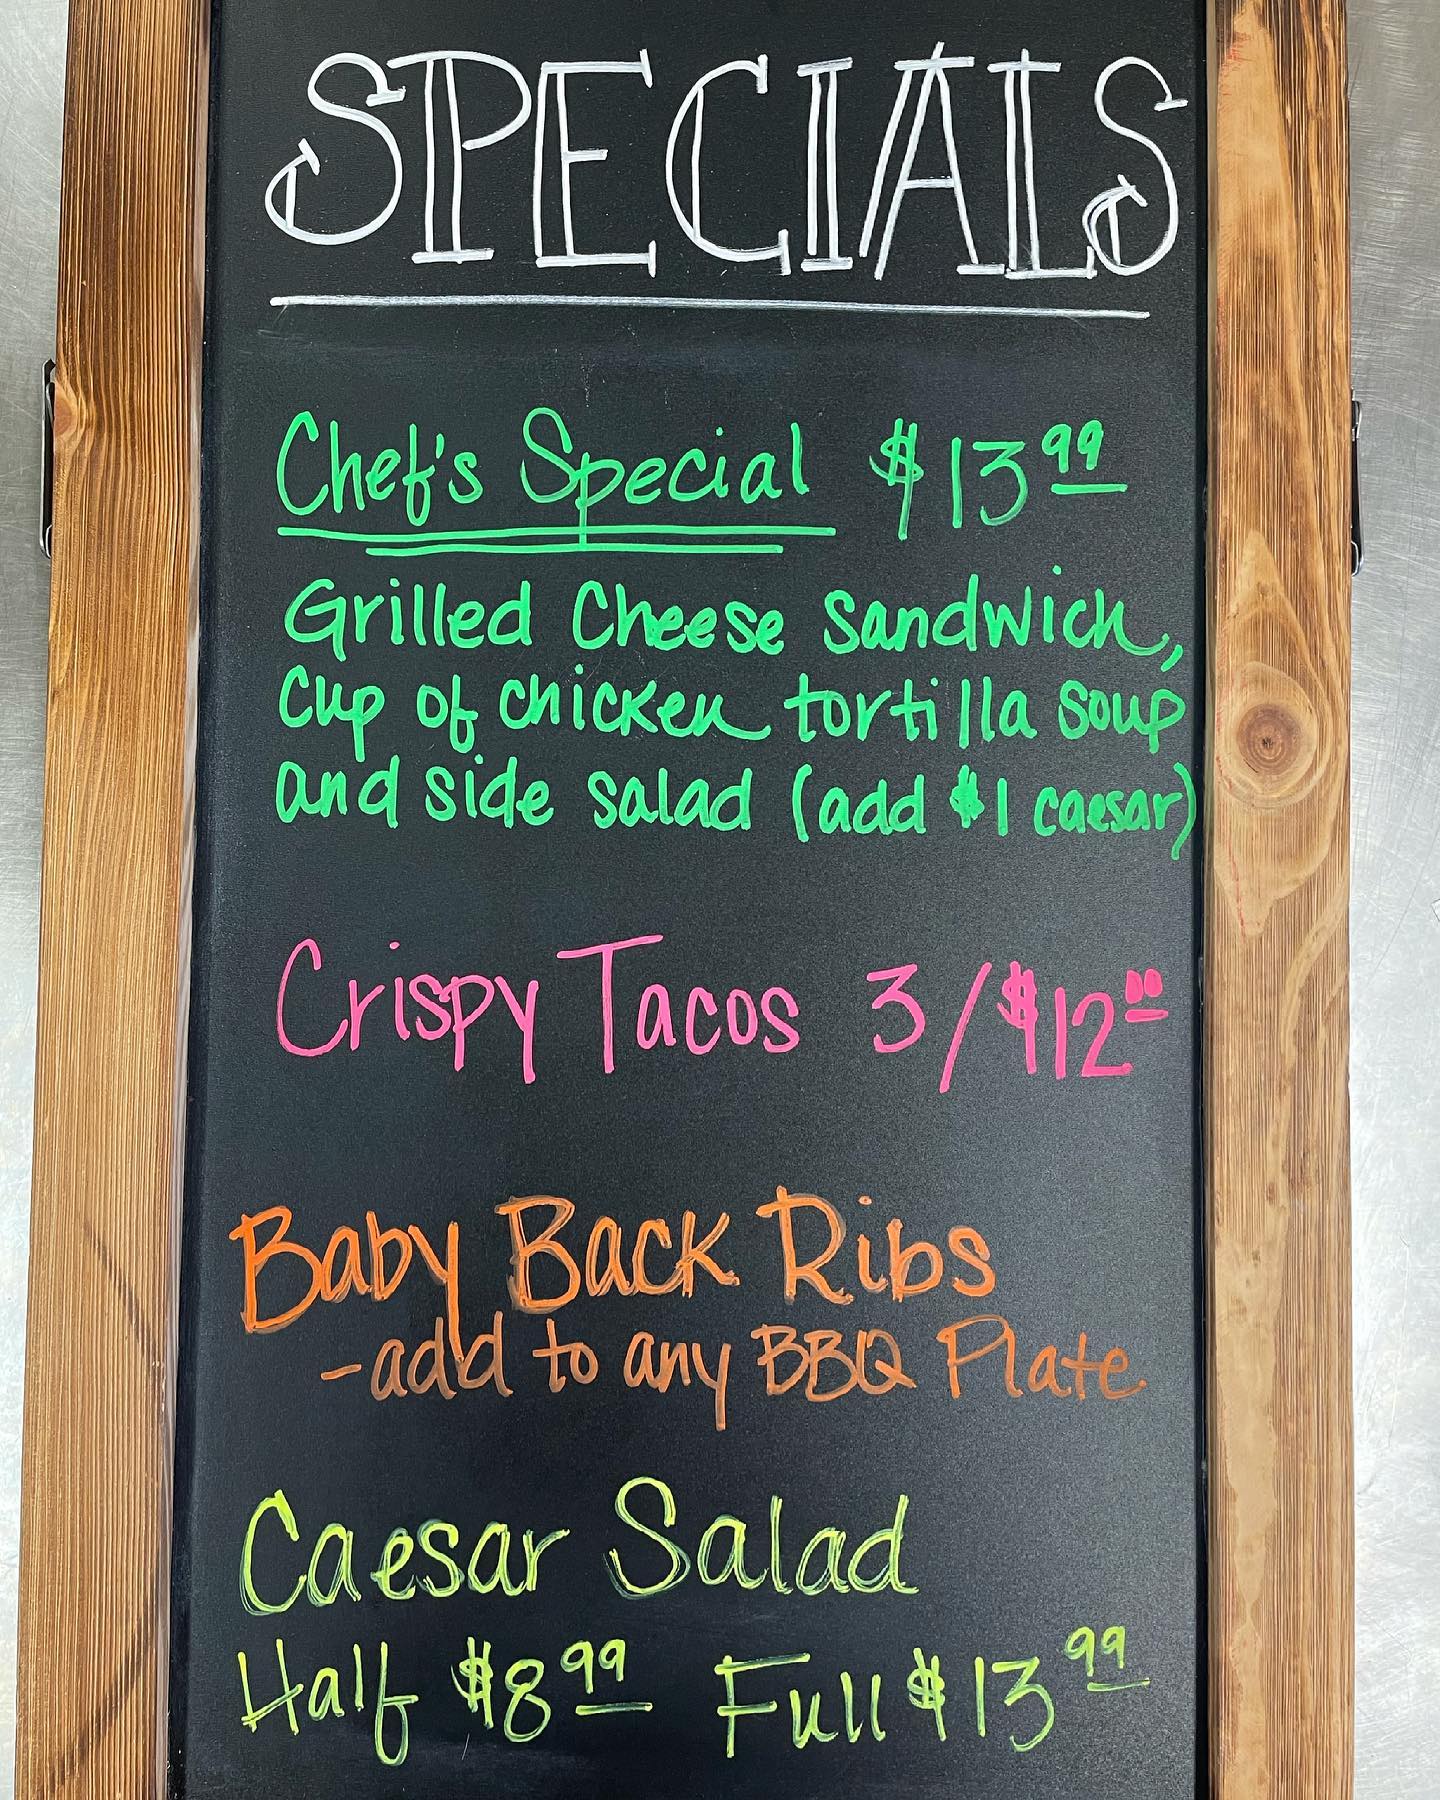 SPECIALS
Chef's Special $13.99
Grilled Cheese Sandwich,
Cup of chicken tortilla soup
and side salad (add $1 caesar)
Crispy Tacos 3/$12.00
Baby Back Ribs
-add to any BBQ Plate
Caesar Salad
Half $8.99 Full $13.99